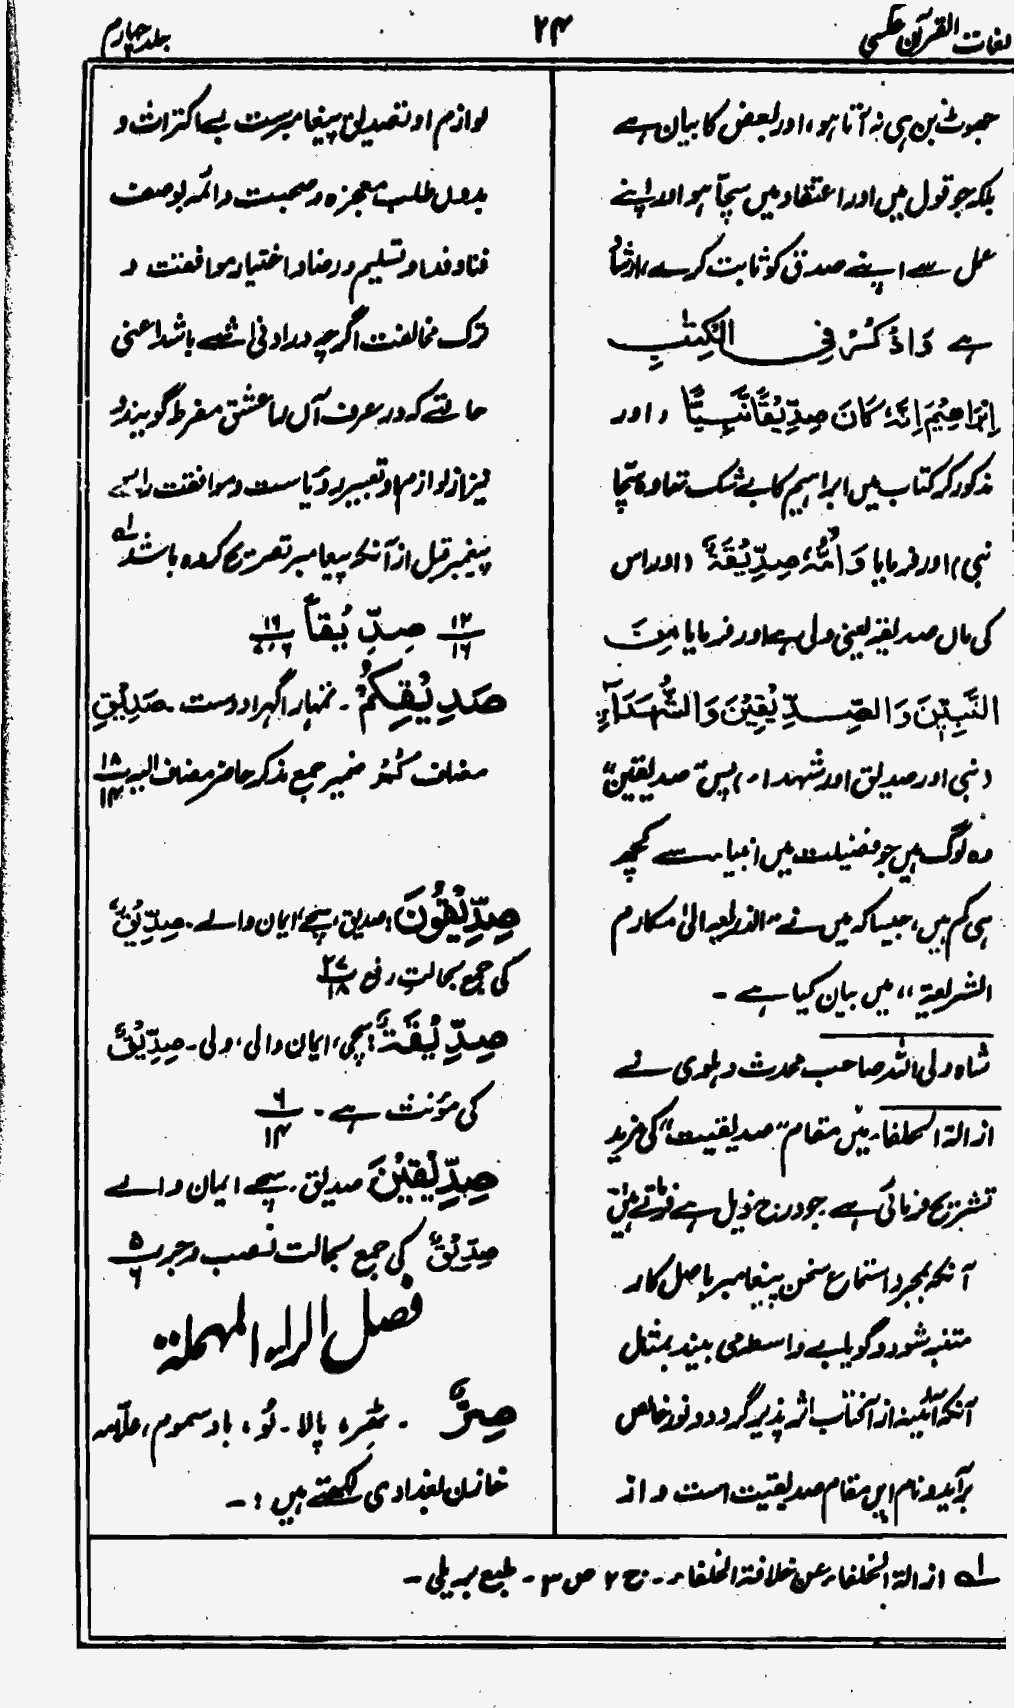 لغات القرآن عکسی
۲۴
جلد چہارم
جھوٹ بن ہی نہ آتا ہو، اور بعض کا بیان ہے
بلکہ جو قول میں اور اعتقاد میں سچا ہو اور اپنے
عمل سے اپنے صدق کو ثابت کرے، ارشاد
ہے وَاذْكُرْ فِي الْكِتٰبِ
اِبْرَاهِيْمَ اِنَّهٗ كَانَ صِدِّيْقًا نَّبِيًّا (اور
مذکور کر کتاب میں ابراہیم کا بے شک تھا وہ سچا
نبی) اور فرمایا وَاُمُّهٗ صِدِّيْقَةٌ (اور اس
کی ماں صدیقہ یعنی ولی ہے) اور فرمایا مِنَ
النَّبِيّٖنَ وَالصِّدِّيْقِيْنَ وَالشُّهَدَآءِ
(نبی اور صدیق اور شہداء) پس "صدیقین"
وہ لوگ ہیں جو فضیلت میں انبیاء سے کچھ
ہی کم ہیں، جیسا کہ میں نے "الذریعہ الیٰ مکارم
الشریعۃ" میں بیان کیا ہے۔
شاہ ولی اللہ صاحب محدث دہلوی نے
ازالۃ الخلفاء میں مقام "صدیقیت" کی مزید
تشریح فرمائی ہے جو درج ذیل ہے فرماتے ہیں
آنکہ بمجرد استماع سخن پیغامبر باصل کار
متنبہ شود و گویا بے واسطہ می بیند بمثل
آنکہ آئینہ از آفتاب اثر پذیر گردد و نور خالص
برآید و نام این مقام صدیقیت است و از
لوازم او تصدیق پیغامبرست بے اکتراث و
بدون طلب معجزہ و صحبت دائمہ بوصف
فنا و فدا و تسلیم و رضا و اختیار موافقت و
ترک مخالفت اگرچہ در ادنی شئے باشد اعنی
حالتے کہ در عرف آں را عشق مفرط گویند و
نیز از لوازم او تعبیر رؤیاست و موافقت رائے
پیغمبر قبل از آنکہ پیغامبر تصریح کردہ باشد ؎۱
۱۲/۱۶ صِدِّيْقًا ۱۶/
صَدِيْقِكُمْ۔ تمہارا گہرا دوست۔ صَدِيْقِ
مضاف كُمْ ضمیر جمع مذکر حاضر مضاف الیہ ۱۸/۱۴
صِدِّيْقُوْنَ صدیق، سچے، ایمان والے۔ صِدِّيْقٌ
کی جمع بحالت رفع ۲۷/۱۸
صِدِّيْقَةٌ: سچی، ایمان والی، ولی۔ صِدِّيْقٌ
کی مؤنث ہے۔ ۶/۱۴
صِدِّيْقِيْنَ صدیق۔ سچے ایمان والے
صِدِّيْقٌ کی جمع بحالت نصب و جر ۵/۶
فصل الراء المهملة
صِرٌّ۔ ٹھر، پالا۔ لُو، باد سموم، علّامہ
خازن بغدادی لکھتے ہیں:۔
؎۱ ازالۃ الخلفاء عن خلافۃ الخلفاء۔ ج ۲ ص ۳۔ طبع بریلی۔